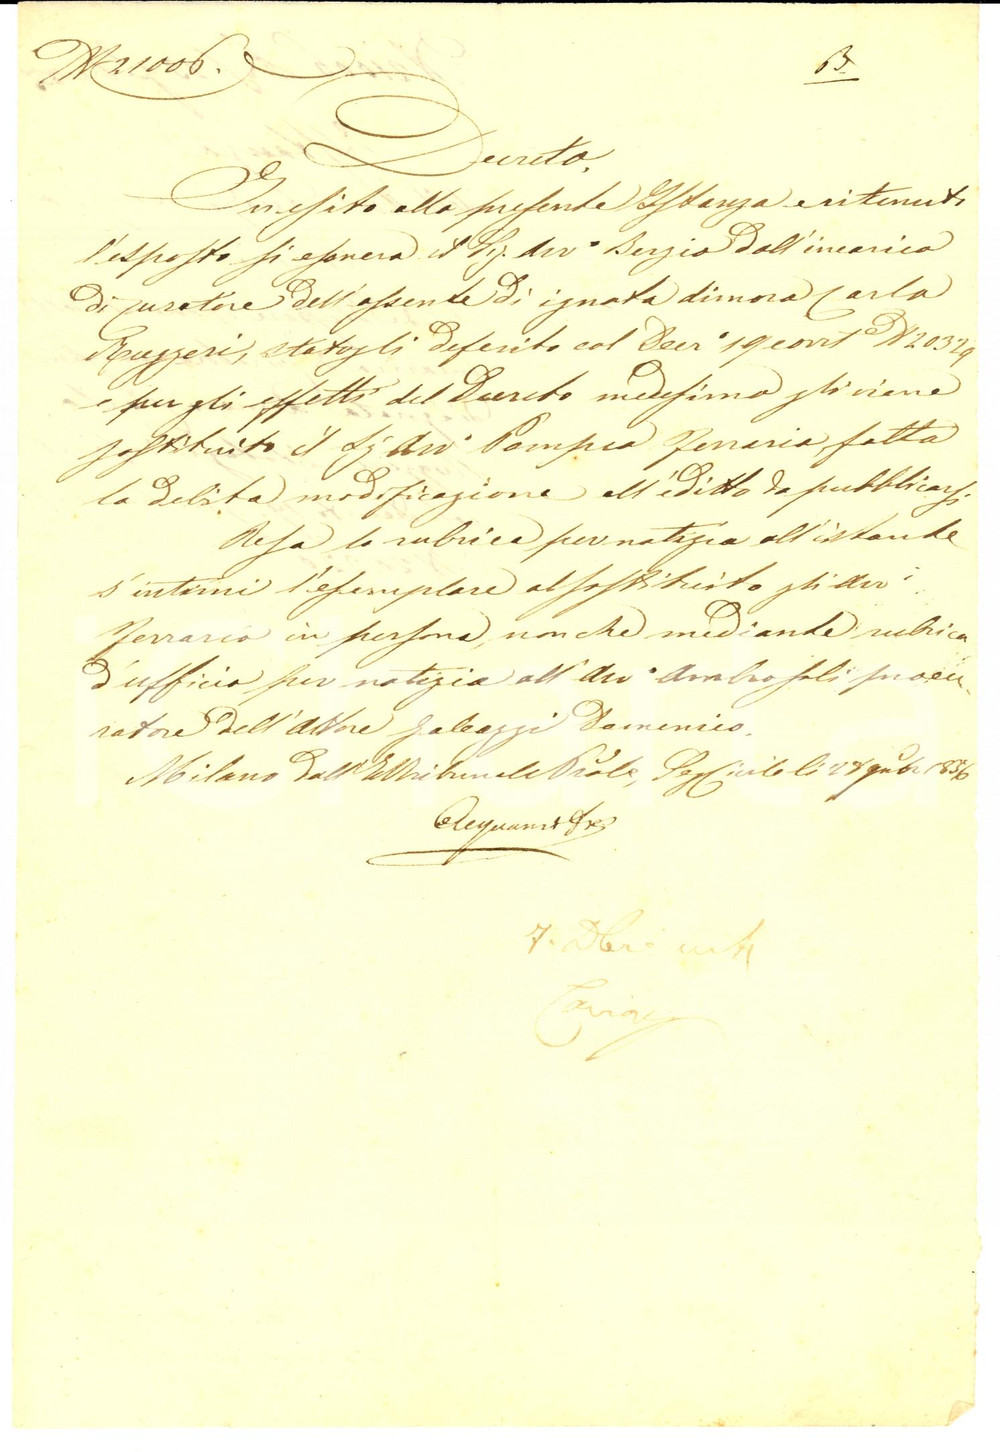 N. 21006.
B.
Decreto.
In esito alla presente Istanza e ritenuto
l'esposto si esonera il Sig. Avv.° Sergio dall'incarico
di curatore dell'assente di ignota dimora Carlo
Ruggeri, statogli deferito col Decr.° 19 corr.t N 20329
e per gli effetti del Decreto medesimo gli viene
sostituito il Sig. Avv.° Pompeo Ferrario, fatta
la debita modificazione all'editto da pubblicarsi
Resa la rubrica per notizia all'istante
s'intimi l'esemplare al sostituito Avv.°
Ferrario in persona, non che mediante rubrica
d'ufficio per notizia all'Avv.° Ambrosoli procu-
ratore dell'Attore Galeazzi Domenico.
Milano dall'I. R. Tribunale Prōle, Sez. Civile li 27 9mbr 1856